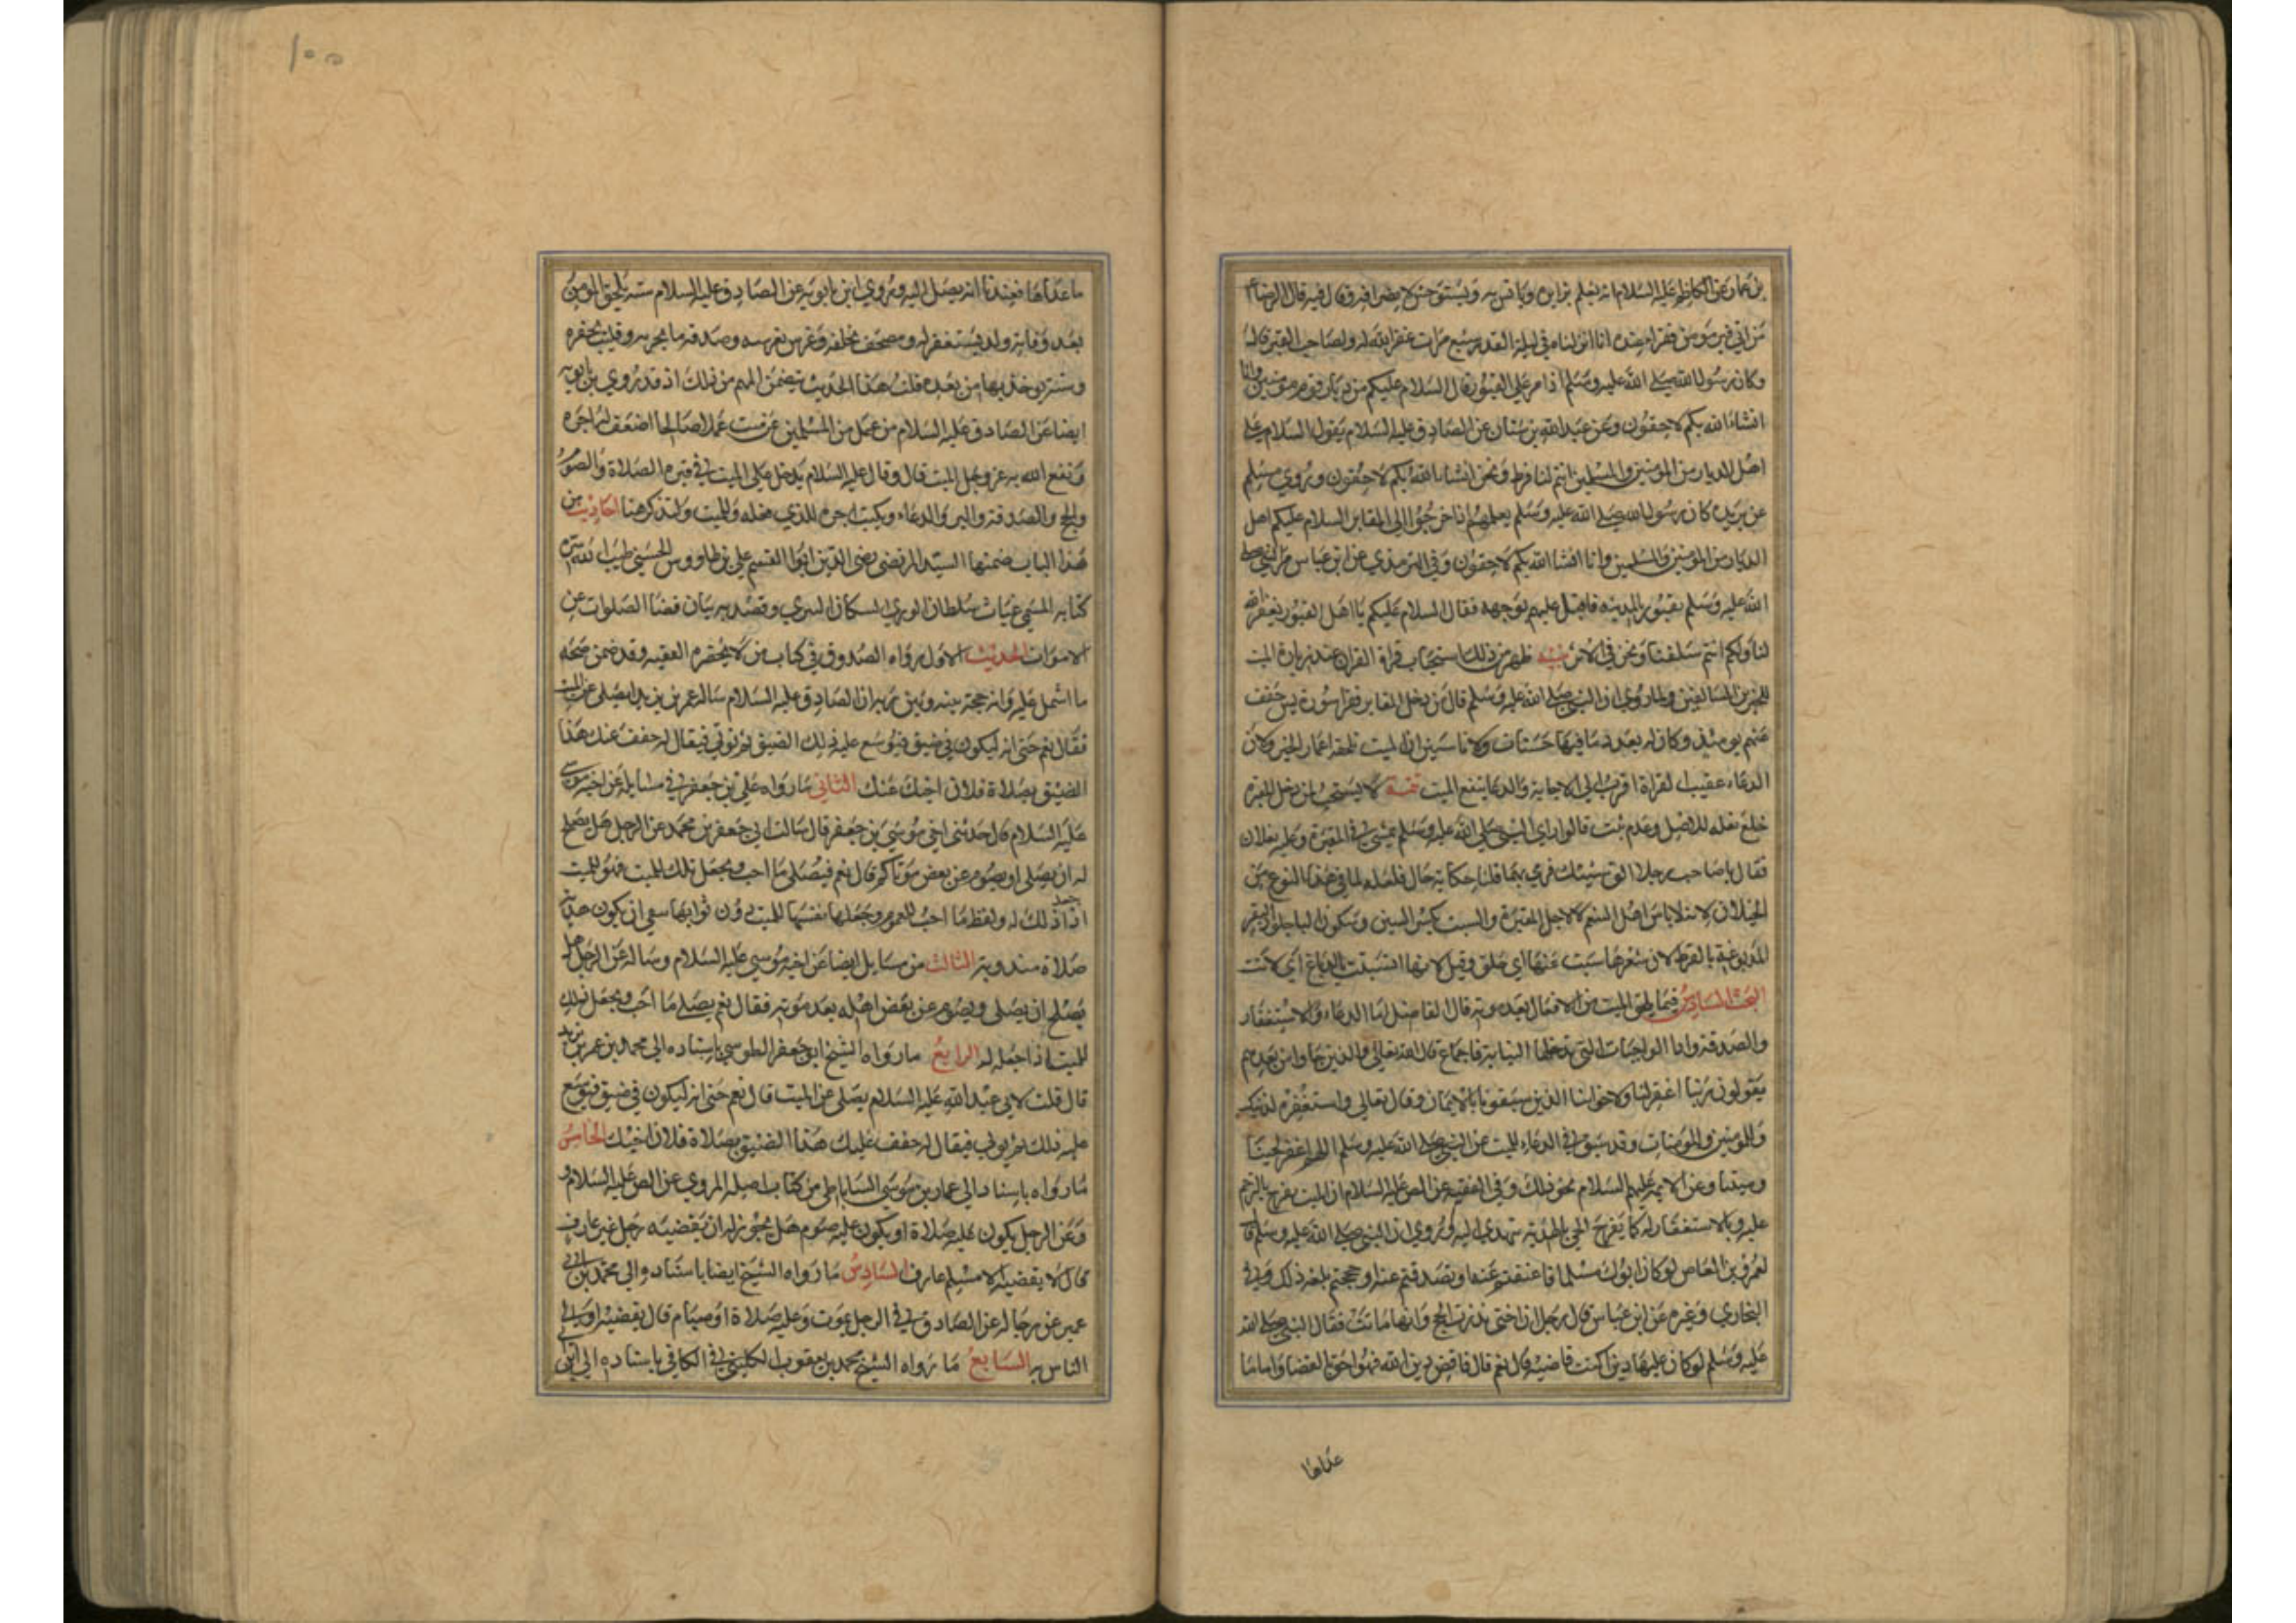 بن عمار عن الكاظم عليه السلام انه يعلم بزايره ويانس به ويستوحش لانصرافه وقال فيه قال الرضا ع
من اتي قبر مومن فقرا عنده انا انزلناه في ليلة القدر سبع مرات غفر الله له ولصاحب القبر قال
وكان رسول الله صلي الله عليه وسلم اذا مر علي القبور قال السلام عليكم من ديار قوم مومنين وانا
انشاء الله بكم لاحقون وعن عبد الله بن سنان عن الصادق عليه السلام يقول السلام علي
اهل الديار من المومنين والمسلمين انتم لنا فرط ونحن انشاء الله بكم لاحقون وروي مسلم
عن بريده كان رسول الله صلي الله عليه وسلم يعلمهم اذا خرجوا الي المقابر السلام عليكم اهل
الديار من المومنين والمسلمين وانا انشا الله بكم لاحقون وفي الترمذي عن ابن عباس مر النبي صلي
الله عليه وسلم بقبور المدينه فاقبل عليهم بوجهه فقال السلام عليكم يا اهل القبور يغفر الله
لنا ولكم انتم سلفنا ونحن في الاثر تنبيه ظهر من ذلك استحباب قراة القران عند زيارة الميت
للخبرين السالفين ولما روي ان النبي صلي الله عليه وسلم قال من دخل المقابر فقرا سورة يس خفف
عنهم يومئذ وكان له بعدد ما فيها حسنات ولاناسين ان الميت تلحقه اعمار الخير ولان
الدعاء عقيب القراة اقرب الي الاجابة والدعا ينفع الميت تتمة لا يستحب لمن دخل المقبرة
خلع نعله للاصل وعدم ثبت قالوا راي النبي صلي الله عليه وسلم يمشي في المقبرة وعليه نعلان
فقال يا صاحب السبتيتين الق سبتيتك فرمي بهما قلنا حكاية حال فلعله لما في هذا النوع من
الخيلاء لانه لباس اهل التنعم لا لاجل المقبرة والسبت بكسر السين وسكون الباء جلود البقر
المدبوغة بالقرظ لان شعرها سبت عنها اي حلق وقيل لانها انسبتت بالدباغ اي لانت
البحث السادس فيما يلحق الميت من الافعال بعد موته قال الفاضل اما الدعاء والاستغفار
والصدقة واداء الواجبات التي تدخلها النيابة فاجماع قال الله تعالي والذين جاوا من بعدهم
يقولون ربنا اغفر لنا ولاخواننا الذين سبقونا بالايمان وقال تعالي واستغفر لذنبك
وللمومنين والمومنات وقد سبق في الدعاء للميت عن النبي صلي الله عليه وسلم اللهم اغفر لحينا
وميتنا وعن الايمه عليهم السلام نحو ذلك وفي الفقيه عن الص عليه السلام ان الميت يفرح بالترحم
عليه وبالاستغفار له كما يفرح الحي بالهدية تهدي اليه وروي ان النبي صلي الله عليه وسلم قال
لعمرو بن العاص لو كان ابوك مسلما فاعتقتم عنه او تصدقتم عنه او حججتم بلغه ذلك وفي
البخاري وغيره عن ابن عباس قال رجل ان اختي نذرت الحج وانها ماتت فقال النبي صلي الله
عليه وسلم لو كان عليها دين اكنت قاضيه قال نعم قال فاقض دين الله فهو احق بالقضا واما ما
عداها
١٠٥
ما عداها فعندنا انه يصل اليه وروي ابن بابويه عن الصادق عليه السلام سته يلحق المومن
بعد وفاته ولد يستغفر له ومصحف يخلفه وغرس يغرسه وصدقه ما يجريه وقليب يحفره
وسنة يوخذ بها من بعده قلت هذا الحديث يتضمن المهم من ذلك اذ قد روي بن بابويه
ايضا عن الصادق عليه السلام من عمل من المسلمين عن ميت عملا صالحا اضعف له اجره
ونفع الله به عز وجل الميت قال وقال عليه السلام يدخل علي الميت في قبره الصلاة والصوم
والحج والصدقة والبر والدعاء ويكتب اجره للذي فعله وللميت ولنذكر هنا احاديث من
هذا الباب ضمنها السيد المرتضي رضي الدين ابوا القسم علي بن طاووس الحسيني طيب الله سره
كتابه المسمي غياث سلطان الوري لسكان الثري وقصد به بيان قضا الصلوات عن
الاموات الحديث الاول رواه الصدوق في كتاب من لا يحضره الفقيه وقد ضمن صحه
ما اشتمل عليه وانه حجة بينه وبين ربه ان الصادق عليه السلام ساله عمر بن يزيد ايصلي عن الميت
فقال نعم حتي انه ليكون في ضيق فيوسع عليه ذلك الضيق ثم يوتي فيقال له خفف عنك هذا
الضيق بصلاة فلان اخيك عنك الثاني ما رواه علي بن جعفر في مسايله عن اخيه موسي
عليه السلام قال حدثني اخي موسي بن جعفر قال سالت ابي جعفر بن محمد عن الرجل هل يصلح
له ان يصلي او يصوم عن بعض موتاكم قال نعم فيصلي ما احب ويجعل تلك للميت فهو للميت
اذا جعل ذلك له ولفظ ما احب للعموم وجعلها نفسها للميت دون ثوابها ينفي ان يكون هدية
صلاة مندوبة الثالث من مسايل ايضا عن اخيه موسي عليه السلام وساله عن الرجل هل
يصلح ان يصلي ويصوم عن بعض اهله بعد موته فقال نعم يصلي ما احب ويجعل ذلك
للميت اذا جعله له الرابع ما رواه الشيخ ابو جعفر الطوسي باسناده الي محمد بن عمر بن يزيد
قال قلت لابي عبد الله عليه السلام يصلي عن الميت قال نعم حتي انه ليكون في ضيق فيوسع
عليه ذلك ثم يوتي فيقال له خفف عليك هذا الضيق بصلاة فلان اخيك الخامس
ما رواه باسناده الي عمار بن موسي الساباطي من كتاب اصله المروي عن الص عليه السلام
وعن الرجل يكون عليه صلاة او يكون عليه صوم هل يجوز له ان يقضيه رجل غير عارف
قال لا يقضيه الا مسلم عارف السادس ما رواه الشيخ ايضا باسناده الي محمد بن ابي
عمير عن رجاله عن الصادق في الرجل يموت وعليه صلاة او صيام قال يقضيه اولي
الناس به السابع ما رواه الشيخ محمد بن يعقوب الكليني في الكافي باسناده الي ابن ابي